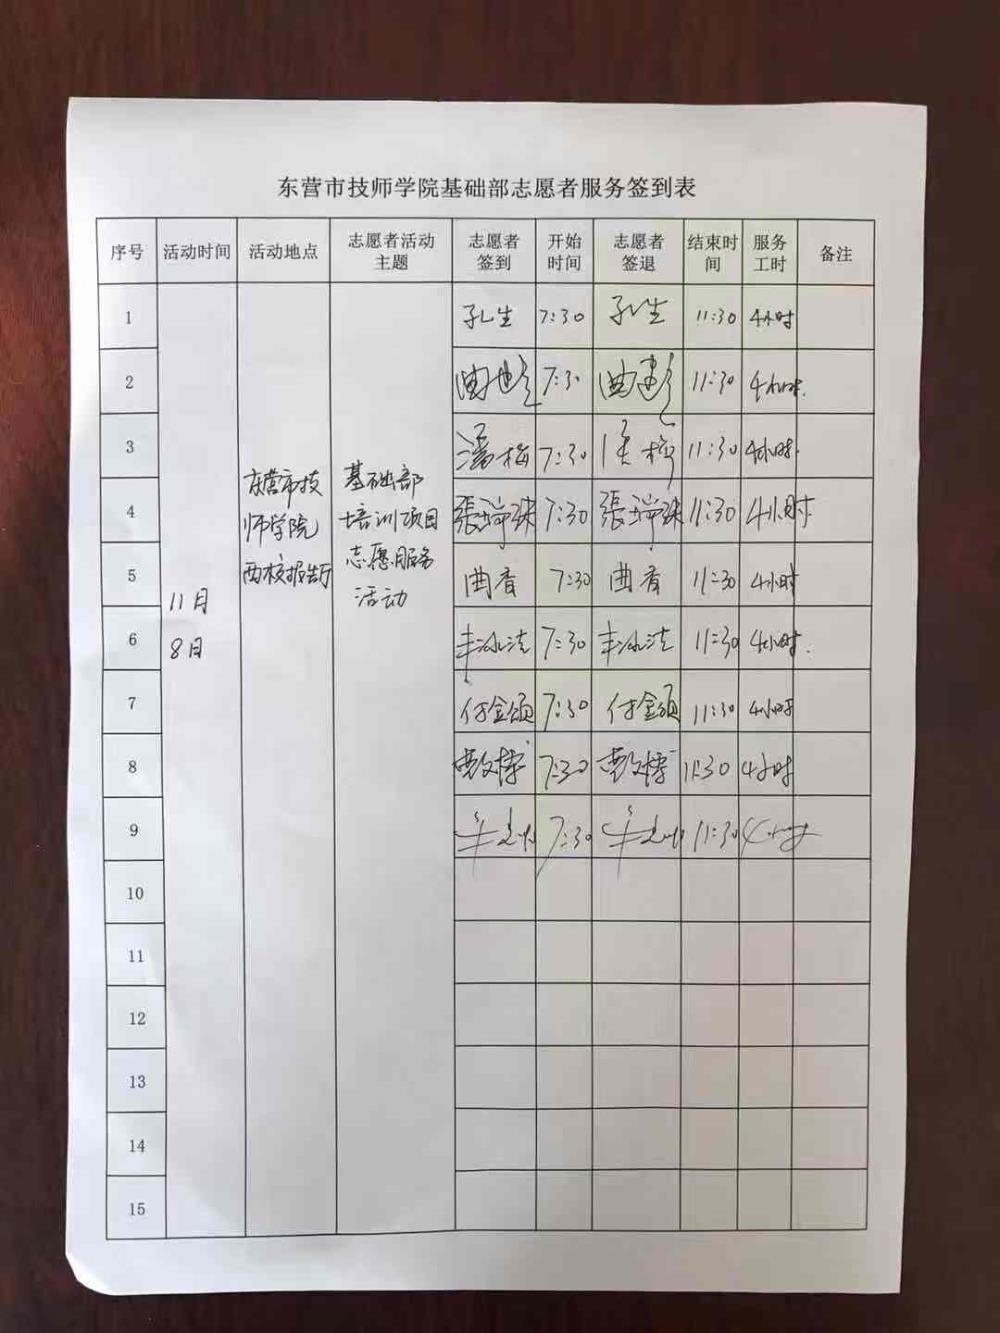 东营市技师学院基础部志愿者服务签到表
序号 活动时间 活动地点 志愿者活动主题 志愿者签到 开始时间 志愿者签退 结束时间 服务工时 备注
11月
8日
东营市技
师学院
西校报告厅
基础部
培训项目
志愿服务
活动
1 孔生 7:30 孔生 11:30 4小时
2 7:30 11:30 4小时.
3 潘梅 7:30 11:30 4小时.
4 張瑞珠 7:30 張瑞珠 11:30 4小时
5 曲香 7:30 曲香 11:30 4小时
6 7:30 11:30 4小时.
7 付金颂 7:30 付金颂 11:30 4小时
8 7:30 11:30 4小时
9 7:30 11:30 4小时
10
11
12
13
14
15